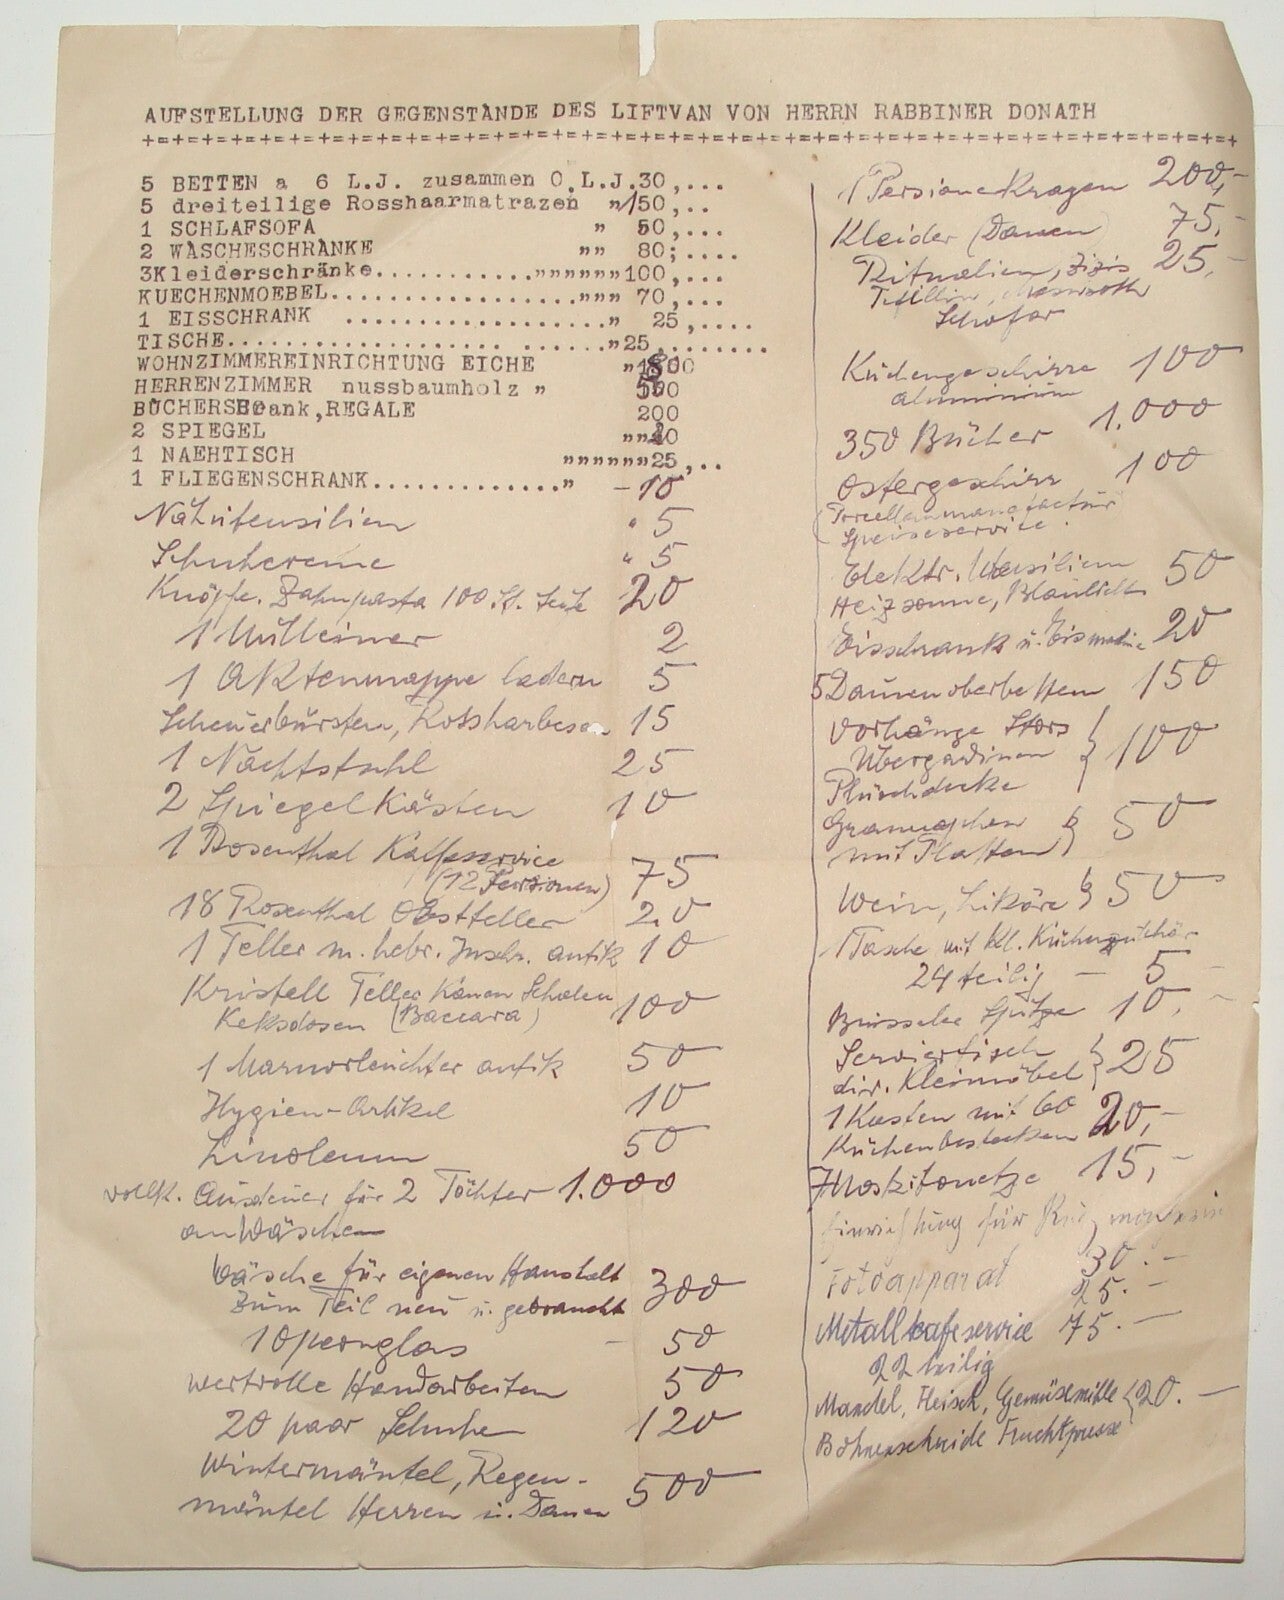 AUFSTELLUNG DER GEGENSTÄNDE DES LIFTVAN VON HERRN RABBINER DONATH
+=+=+=+=+=+=+=+=+=+=+=+=+=+=+=+=+=+=+=+=+=+=+=+=+=+=+=+=+=+=+=+=+=+=+
5 BETTEN a 6 L.J. zusammen O.L.J.30,...
5 dreiteilige Rosshaarmatrazen "150,..
1 SCHLAFSOFA " 50,...
2 WÄSCHESCHRÄNKE "" 80;....
3Kleiderschränke............""""""100,...
KUECHENMOEBEL..................""" 70,...
1 EISSCHRANK ..................." 25,....
TISCHE..................... ......"25,........
WOHNZIMMEREINRICHTUNG EICHE
HERRENZIMMER nussbaumholz " 500
BÜCHERSCHrank,REGALE 200
2 SPIEGEL
1 NAEHTISCH """"""25,..
1 FLIEGENSCHRANK............." - 10
Nähutensilien " 5
Schuhcreme " 5
Knöpfe. Zahnpasta 100 St. Seife 20
1 Mülleimer 2
1 Aktenmappe ledern 5
Scheuerbürsten, Rossharbesen 15
1 Nachtstuhl 25
2 Spiegelkästen 10
1 Rosenthal Kaffeeservice
(12 Personen) 75
18 Rosenthal Obstteller 20
1 Teller m. hebr. Inschr. antik 10
Kristall Teller Kannen Schalen
Keksdosen (Baccara) 100
1 Marmorleuchter antik 50
Hygien-Artikel 10
Linoleum 50
vollk. Ausdeuer für 2 Töchter 1.000
an Wäsche
Wäsche für eigenen Haushalt
zum Teil neu u. gebraucht 300
1 Opernglas - 50
wertvolle Handarbeiten 50
20 paar Schuhe 120
Wintermäntel, Regen-
mäntel Herren u. Damen 500
1 Persianerkragen 200,-
Kleider (Damen) 75,-
Ritualien, Zizis 25,-
Tefillin, Mesusoth
Schofar
Küchengeschirr 100
Aluminium
350 Bücher 1.000
Ostergeschirr 100
(Porcellanmanufactur
Speiseservice.
Elektr. Utensilien 50
Heizsonne, Blaulicht
Eisschrank u. Eismaschine 20
5 Daunenoberbetten 150
Vorhänge Stors
Übergardinen } 100
Plüschdecke
Gramophon
mit Platten } 50
Wein, Liköre } 50
1 Tasche mit kl. Küchenzubehör
24 teilig - 5 -
Brüsseler Spitze 10,-
Serviertisch
div. Kleinmöbel } 25
1 Kasten mit 60 20,-
Küchenbestecken
7 Moskitonetze 15,-
Einrichtung für
30.-
Fotoapparat 25.-
Metallkafeservice 75.-
22 teilig
Mandel, Fleisch, Gemüsemühle { 20.-
Bohnenschneide Fruchtpresse